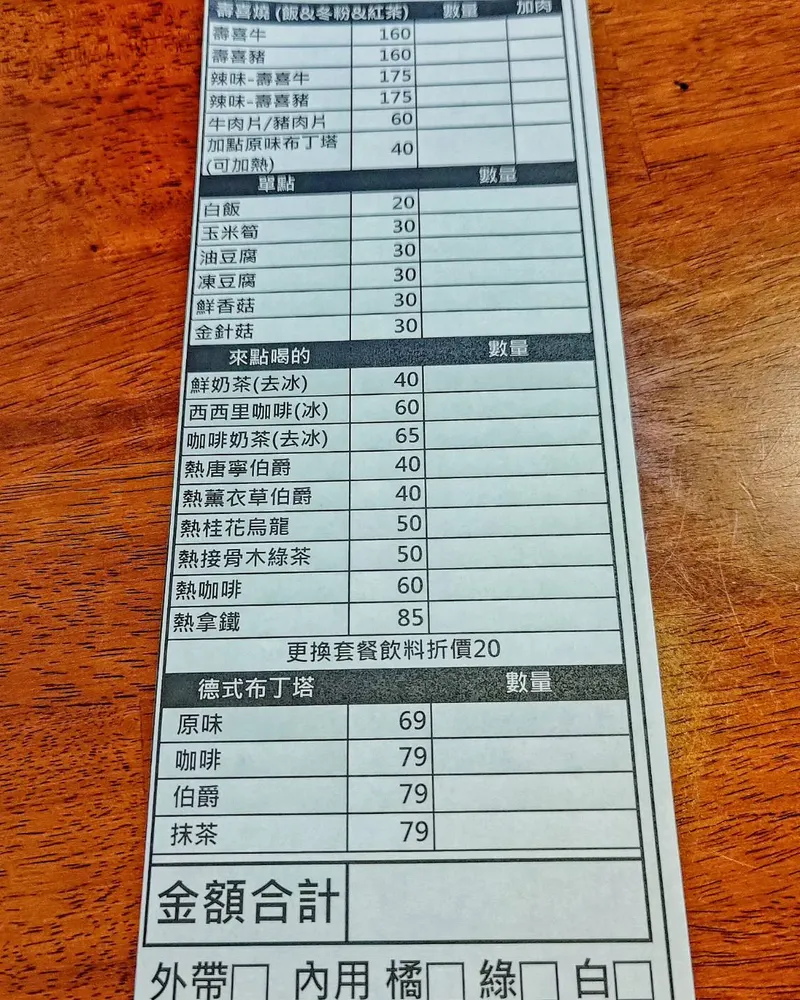 壽喜燒 (飯&冬粉&紅茶) 數量 加肉
壽喜牛 160
壽喜豬 160
辣味-壽喜牛 175
辣味-壽喜豬 175
牛肉片/豬肉片 60
加點原味布丁塔
(可加熱) 40
單點 數量
白飯 20
玉米筍 30
油豆腐 30
凍豆腐 30
鮮香菇 30
金針菇 30
來點喝的 數量
鮮奶茶(去冰) 40
西西里咖啡(冰) 60
咖啡奶茶(去冰) 65
熱唐寧伯爵 40
熱薰衣草伯爵 40
熱桂花烏龍 50
熱接骨木綠茶 50
熱咖啡 60
熱拿鐵 85
更換套餐飲料折價20
德式布丁塔 數量
原味 69
咖啡 79
伯爵 79
抹茶 79
金額合計
外帶□ 內用 橘□ 綠□ 白□